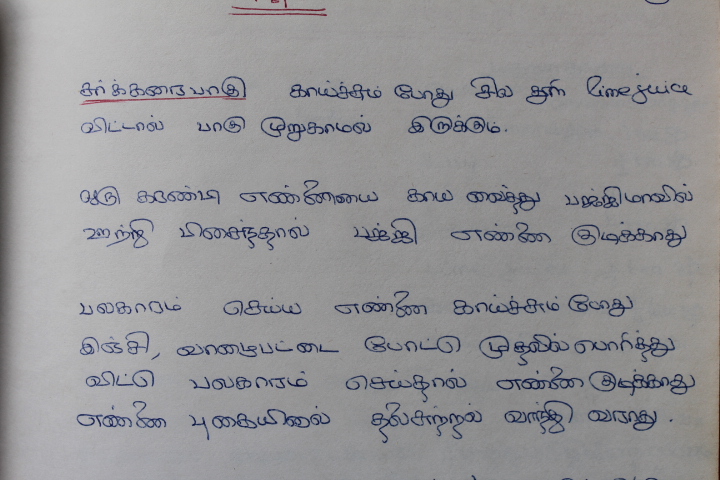 சர்க்கரைபாகு காய்ச்சும் போது சில துளி limejuice
விட்டால் பாகு முறுகாமல் இருக்கும்.
ஒரு கரண்டி எண்ணையை காய வைத்து பஜ்ஜிமாவில்
ஊற்றி பிசைந்தால் பஜ்ஜி எண்ணை குடிக்காது
பலகாரம் செய்ய எண்ணை காய்ச்சும் போது
இஞ்சி, வாழைபட்டை போட்டு முதலில் பொரித்து
விட்டு பலகாரம் செய்தால் எண்ணை குடிக்காது
எண்ணை புகையினால் தலைசுற்றல் வாந்தி வராது.